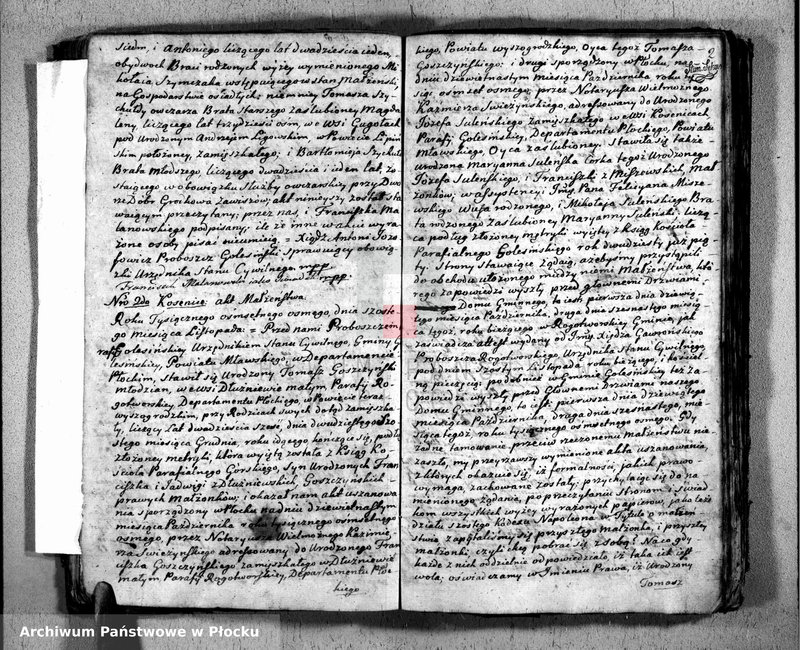 siedm, i Antoniego liczącego lat dwadzieścia ieden,
obydwoch Braci rodzonych wyżey wymienionego Mi-
kołaia Szymczaka wstępuiącego w stan Małżeński,
na Gospodarstwie osiadłych; niemniey Tomasza Szy-
chuldy owczarza Brata Starszego zaślubioney Magda-
leny, liczącego lat trzydzieści osm, we wsi Gugołach
pod Urodzonym Andrzeiem Ligowskim, w Powiecie Lipiń-
skim położoney, zamieszkałego; i Bartłomieja Szychuldy
Brata Młodszego liczącego dwadzieścia i ieden lat, zo-
staiącego w obowiązku Służby owczarskiey przy Dwo-
rze Dobr Grochowa Zawiszów, akt ninieyszy został sta-
waiącym przeczytany; przez nas, i Franciszka Ma-
lanowskiego podpisany; ile że inne w akcie wyra-
żone osoby pisać nieumieią. = Xiądz Antoni Józe-
fowicz Proboszcz Golesiński Sprawuiący obowią-
zki Urzędnika Stanu Cywilnego. mpp
Franciszek Malanowski jako świadek mpp
Nro 2do Kosenice: akt Małżeństwa.
Roku Tysiącznego osmset osmego, dnia szóste-
go miesiąca Listopada. = Przed nami Proboszczem
Golesińskim, Urzędnikiem Stanu Cywilnego, Gminy Go-
lesińskiey, Powiatu Mławskiego, w Departamencie
Płockim, stawił się Urodzony Tomasz Goszczyński
młodzian, we wsi Dłużniewie małym Parafii Ro-
gotworskiey, Departamentu Płockiego, w Powiecie teraz
wyszogrodzkim, przy Rodzicach swych dotąd zamieszka-
ły, liczący lat dwadzieścia sześć, dnia dwudziestego szó-
stego miesiąca Grudnia, roku idącego kończące się, podług
złożoney metryki, która wyięta została z Xiąg Ko-
ścioła Parafialnego Gorskiego, Syn Urodzonych Fran-
ciszka i Jadwigi z Dłużniewskich, Goszczyńskich
prawych małżonków; i okazał nam akt uszanowa-
nia sporządzony w Płocku na dniu dziewiętnastym
miesiąca Października roku tysiącznego osmsetnego
osmego, przez Notaryusza Wielmożnego Kazimie-
rza Świeżyńskiego adresowany do Urodzonego Fran-
ciszka Goszczyńskiego zamieszkałego w Dłużniewie
małym Parafii Rogotworskiey, Departamentu Płoc-
kiego
kiego, Powiatu wyszogrodzkiego, Oyca tegoż Tomasza
Goszczyńskiego; i drugi sporządzony w Płocku, na
dniu dziewiętnastym miesiąca Października roku ty-
siąc osmset osmego, przez Notaryusza Wielmożnego
Kazimierza Świeżyńskiego, adresowany do Urodzonego
Józefa Suleńskiego zamieszkałego w wsi Kosenicach
Parafii Golesińskiey, Departamentu Płockiego, Powiatu
Mławskiego, Oyca zaślubioney. Stawiła się także
urodzona Maryanna Suleńska Corka tegoż Urodzonego
Józefa Suleńskiego, i Franciszki z Miszewskich, Mał-
żonków, w assystencyi Jmć Pana Felicyana Misze-
wskiego Wuja rodzonego, i Mikołaja Suleńskiego Bra-
ta rodzonego Zaslubioney Maryanny Suleński: licząca
podług złożoney metryki wyiętey z Xiąg kościoła
Parafialnego Golesińskiego rok dwudziesty już pią-
ty. Strony stawaiące żądaią, ażebyśmy przystąpili
do obchodu ułożonego między niemi Małżeństwa, któ-
rego zapowiedzi wyszły przed głównemi Drzwiami
Domu Gminnego, to iest: pierwsza dnia dziewią-
tego miesiąca Października, druga dnia szesnastego miesią-
ca tegoż, roku bieżącego w Rogotworskiey Gminie, jak
zaświadcza attest wydany od Jmć Xiędza Głowońskiego
Proboszcza Rogotworskiego, Urzędnika Stanu Cywilnego
pod dniem szóstym Listopada, roku bieżącego, i kościel-
ną pieczęcią; podobnież w Gminie Golesińskiey też za-
powiedzi wyszły przed Głównemi Drzwiami naszego
Domu Gminnego, to iest: pierwsza dnia dziewiątego
miesiąca Października, druga dnia szesnastego, mie-
siąca tegoż, roku tysiącznego osmsetnego osmego. Gdy
żadne tamowanie przeciw rzeczonemu małżeństwu nie
zaszło, my przeyrzawszy wymienione akta uszanowania,
z których okazuie się, iż formalności, jakich prawo
wymaga, zachowane zostały, przychylaiąc się do na-
mienionego żądania, po przeczytaniu Stronom i świad-
kom wszystkich wyżey wyrażonych papierów, jako też
działu szóstego Kodexu Napoleona w Tytule o małżeń-
stwie, zapytaliśmy się przyszłego małżonka, i przyszłey
małżonki, czyli chcą pobrać się z sobą? Na co gdy
każde z nich oddzielnie odpowiedziało, iż taka ich iest
wola; oświadczamy w Jmieniu Prawa, iż Urodzony
Tomasz
Archiwum Państwowe w Płocku